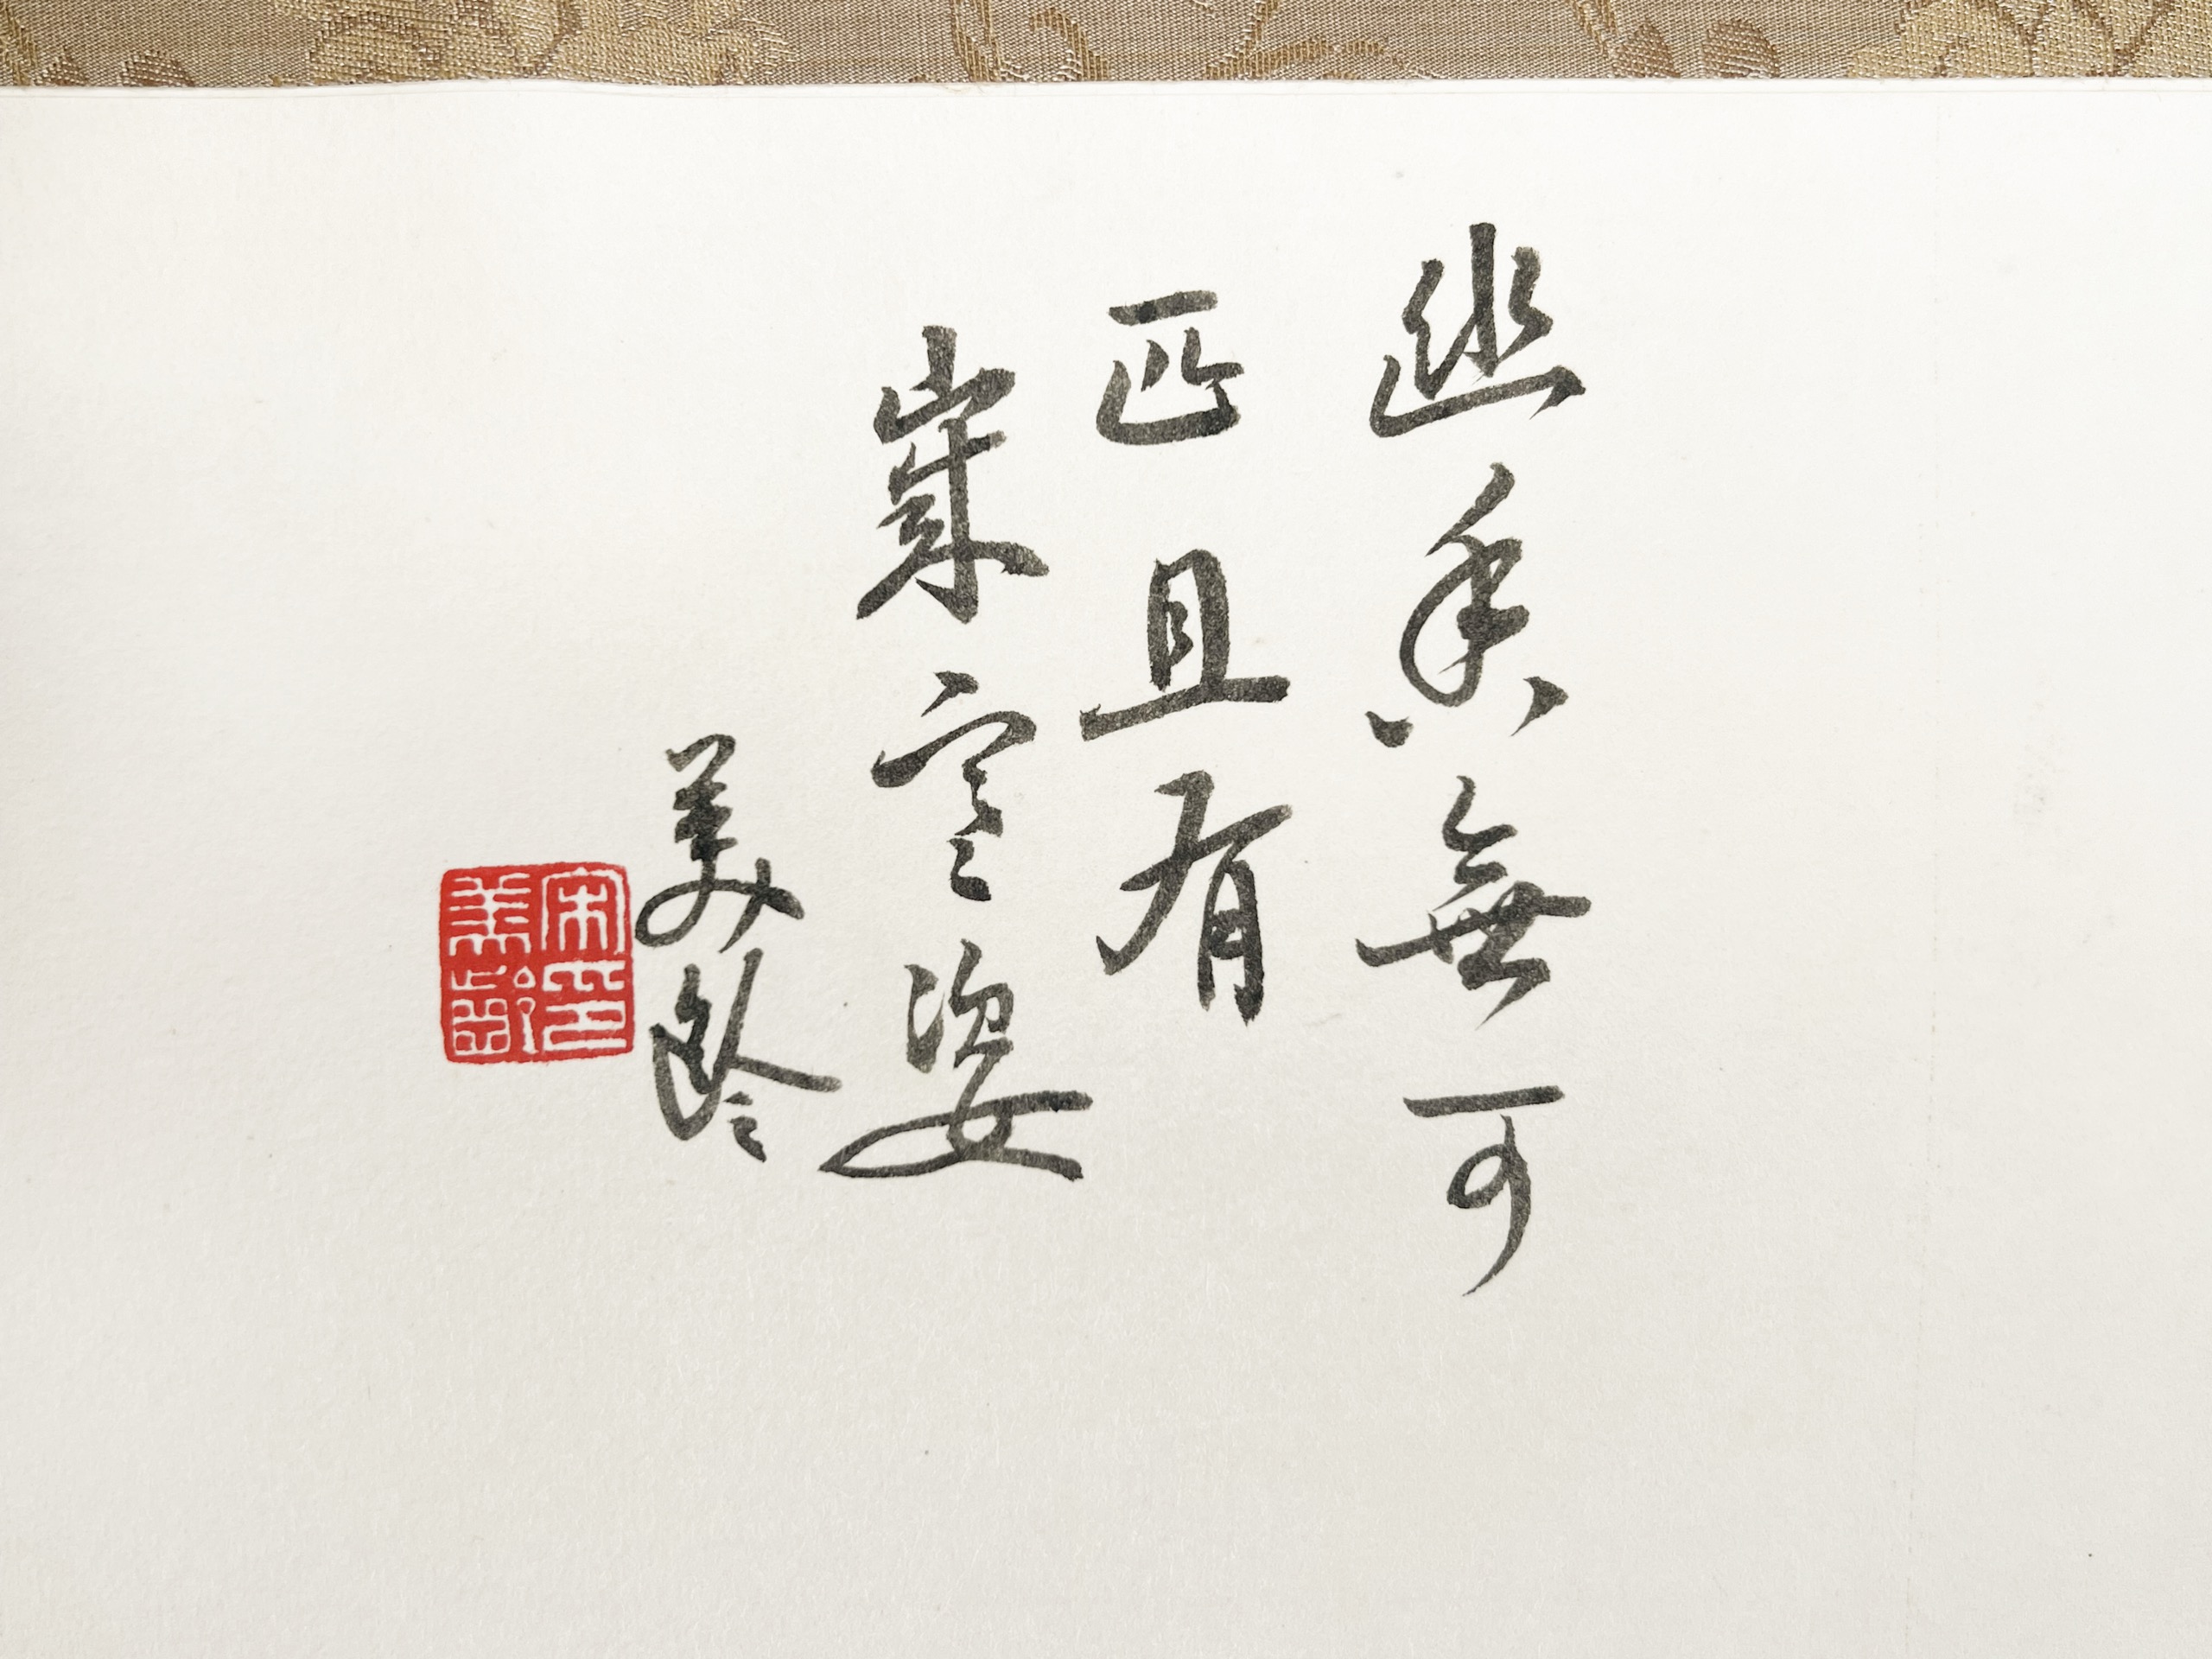 幽香無可
匹且有
歲寒姿
美齡
宋美齡印